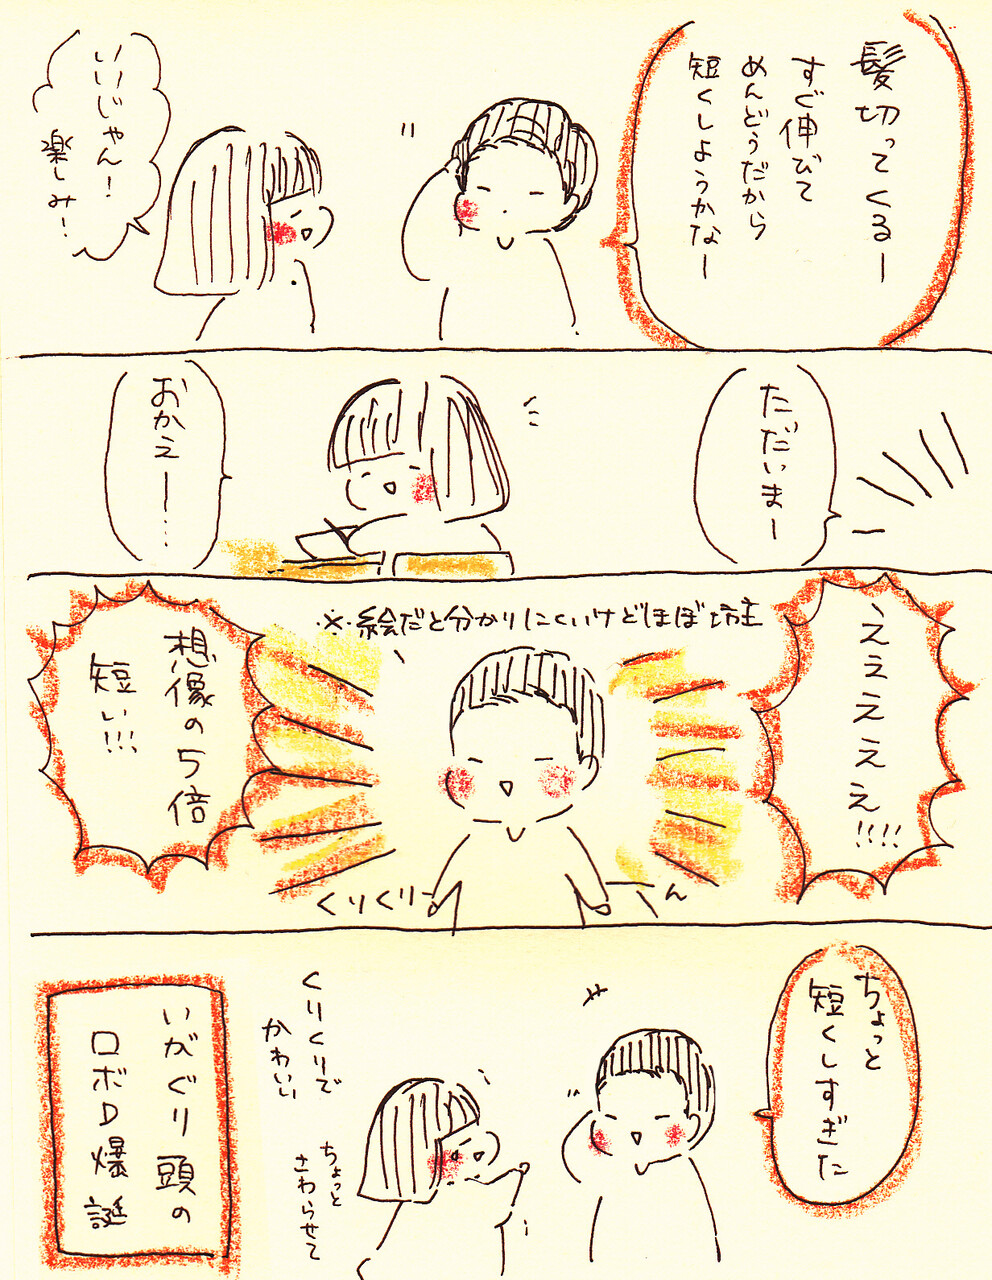 髪切ってくるー
すぐ伸びて
めんどうだから
短くしようかなー
いいじゃん!
楽しみ!
ただいまー
おかえー…
えええええ!!!!
※絵だと分かりにくいけどほぼ坊主
想像の5倍
短い!!!
くりくり
ん
ちょっと
短くしすぎた
くりくりで
かわいい
ちょっと
さわらせて
いがぐり頭の
ロボD爆誕